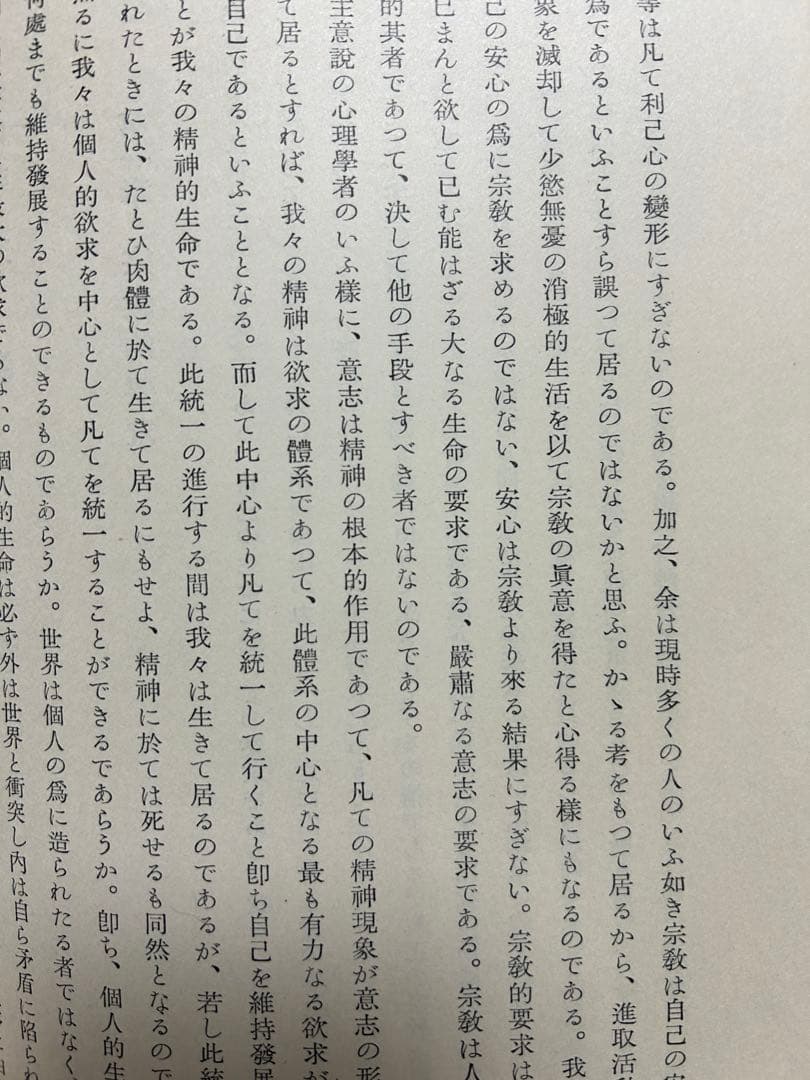 等は凡て利己心の變形にすぎないのである。加之、余は現時多くの人のいふ如き宗敎は自己の安
爲であるといふことすら誤つて居るのではないかと思ふ。かゝる考をもつて居るから、進取活
象を滅却して少慾無憂の消極的生活を以て宗敎の眞意を得たと心得る樣にもなるのである。我
己の安心の爲に宗敎を求めるのではない、安心は宗敎より來る結果にすぎない。宗敎的要求は
已まんと欲して已む能はざる大なる生命の要求である、嚴肅なる意志の要求である。宗敎は人
的其者であつて、決して他の手段とすべき者ではないのである。
主意說の心理學者のいふ樣に、意志は精神の根本的作用であつて、凡ての精神現象が意志の形
て居るとすれば、我々の精神は欲求の體系であつて、此體系の中心となる最も有力なる欲求が
自己であるといふこととなる。而して此中心より凡てを統一して行くこと卽ち自己を維持發展
とが我々の精神的生命である。此統一の進行する間は我々は生きて居るのであるが、若し此統
れたときには、たとひ肉體に於て生きて居るにもせよ、精神に於ては死せるも同然となるので
然るに我々は個人的欲求を中心として凡てを統一することができるであらうか。卽ち、個人的生
何處までも維持發展することのできるものであらうか。世界は個人の爲に造られたる者ではなく
の欲求でもない。個人的生命は必ず外は世界と衝突し內は自ら矛盾に陷られ